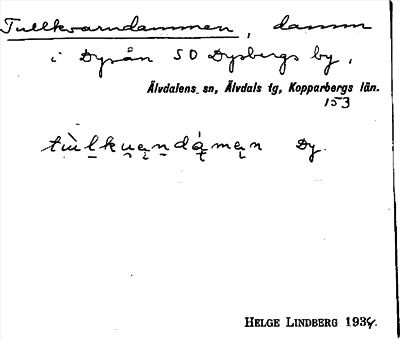 Tullkvarndammen, damm
i Dysån SO Dysbergs by,
Älvdalens sn, Älvdals tg, Kopparbergs län.
153
Dy.
HELGE LINDBERG 1934.